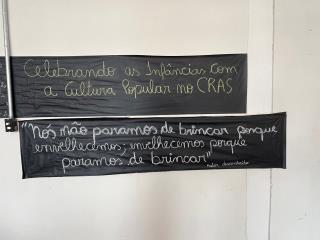 Celebrando as Infâncias com
a Cultura Popular no CRAS
"Nós não paramos de brincar porque
envelhecemos; envelhecemos porque
paramos de brincar"
autor desconhecido